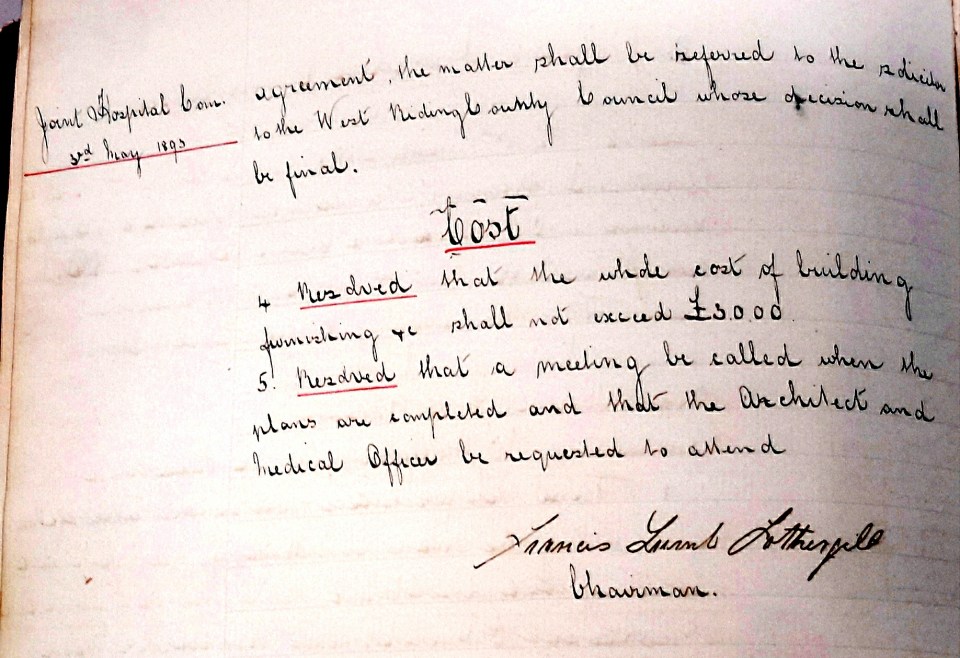 Joint Hospital Com.
3rd May 1893
agreement, the matter shall be referred to the solicitor
to the West Riding County Council whose decision shall
be final.
Cost
4 Resolved that the whole cost of building
furnishing &c shall not exceed £3000
5. Resolved that a meeting be called when the
plans are completed and that the Architect and
Medical Officer be requested to attend
Francis Fothergill
Chairman.